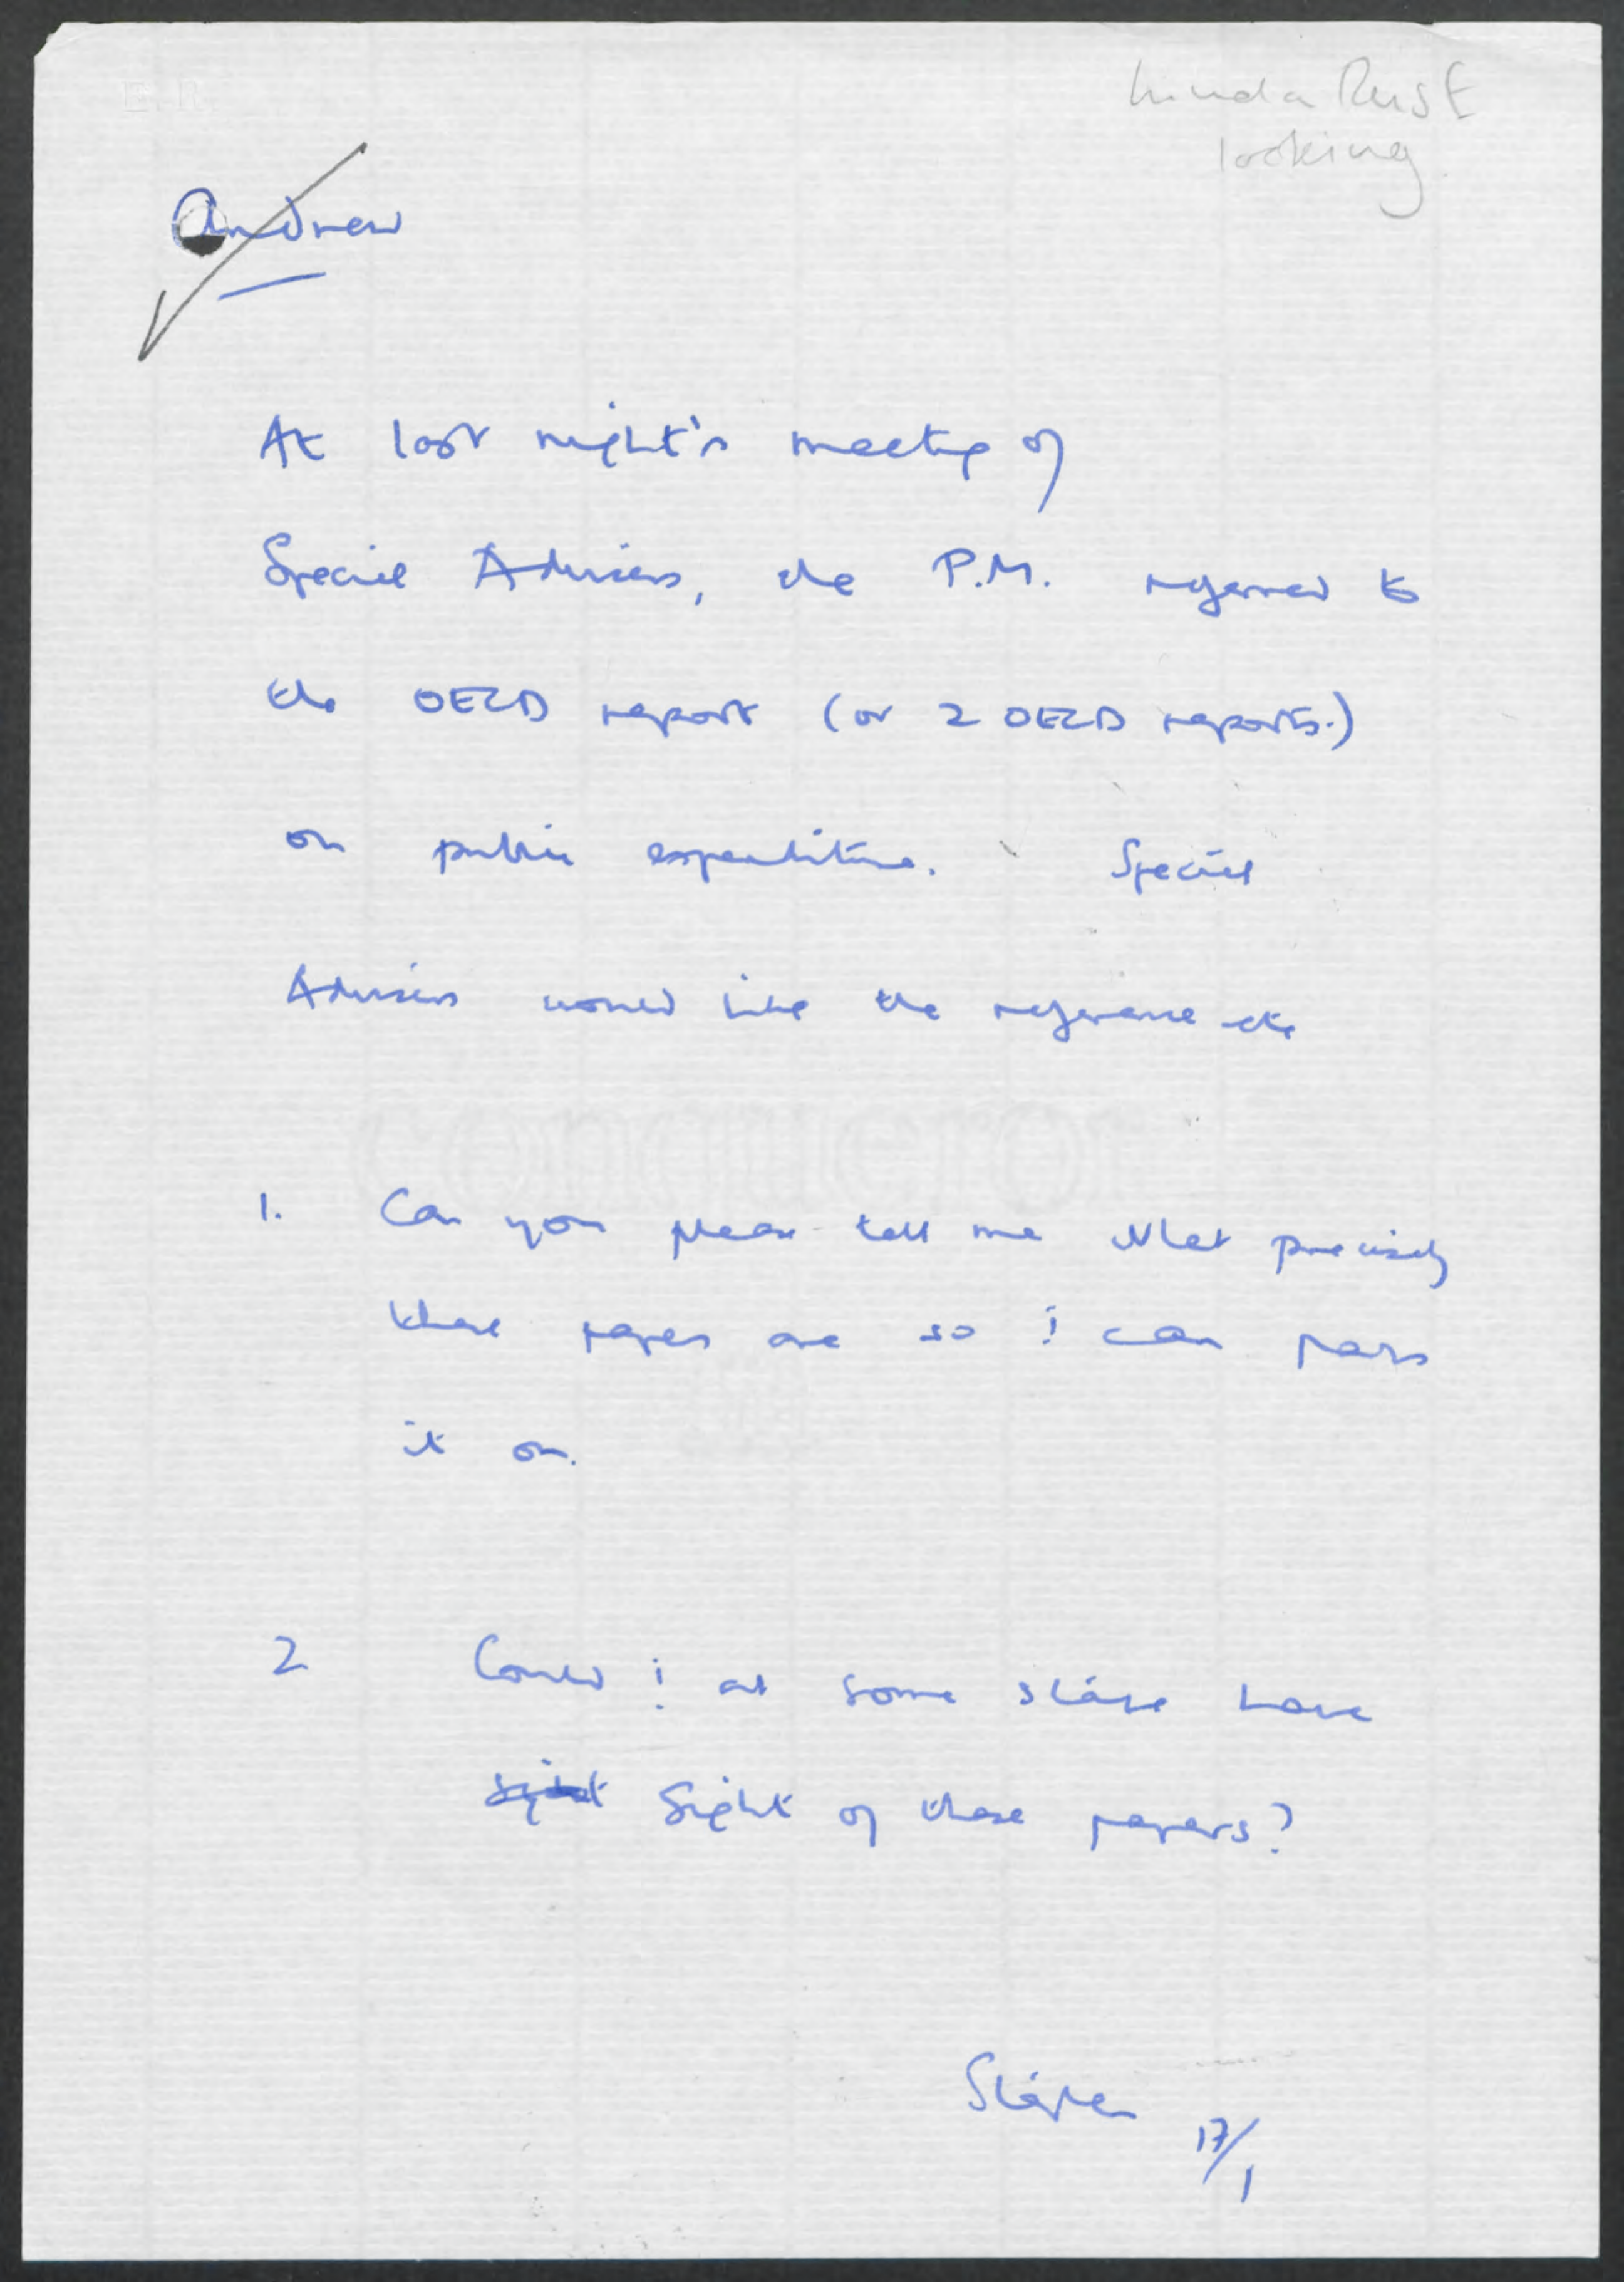 E.R.
Linda Rust
looking
Andrew
At last night's meeting of
Special Advisers, the P.M. referred to
the OECD report (or 2 OECD reports.)
on public expenditure. Special
Advisers would like the reference etc
conqueror
1. Can you please tell me what precisely
these papers are so I can pass
it on.
2 Could I at some stage have
sight Sight of these papers?
Stephen 17/1